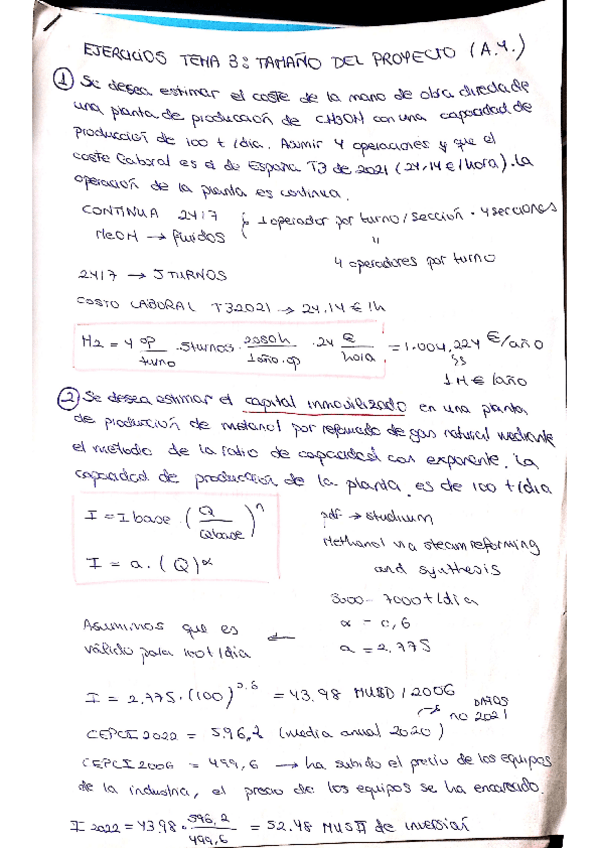 EJERCICIOS TEMA 3: TAMAÑO DEL PROYECTO (A.Y.)
① Se desea estimar el coste de la mano de obra directa de
una planta de producción de CH3OH con una capacidad de
producción de 100 t/dia. Asumir 4 operaciones y que el
coste laboral es el de España T3 de 2021 (24,14 €/hora). La
operación de la planta es continua.
CONTINUA 24/7 1 operador por turno/sección · 4 secciones
MeOH → fluidos
4 operadores por turno
24/7 → 5 TURNOS
COSTO LABORAL T32021 → 24,14 €/h
M2 = 4 op/turno · 5 turnos · 2080h/1año·op · 24 €/hora = 1.004,224 €/año
1 M€/año
② Se desea estimar el capital inmovilizado en una planta
de producción de metanol por reformado de gas natural mediante
el metodo de la ratio de capacidad con exponente. La
capacidad de producción de la planta es de 100 t/dia
I = I base · (Q/Qbase)^n pdf → studium
Methanol via steam reforming
I = a · (Q)^α and synthesis
3000 - 7000 t/dia
Asumimos que es ← α = 0,6
válido para 100 t/dia a = 2,775
I = 2,775 · (100)^0,6 = 43,98 MUSD/2006
DATOS
no 2021
CEPCI 2022 = 596,2 (media anual 2020)
CEPCI 2006 = 499,6 → ha subido el precio de los equipos
de la industria, el precio de los equipos se ha encarecido.
I 2022 = 43,98 · 596,2/499,6 = 52,48 MUS$ de inversión